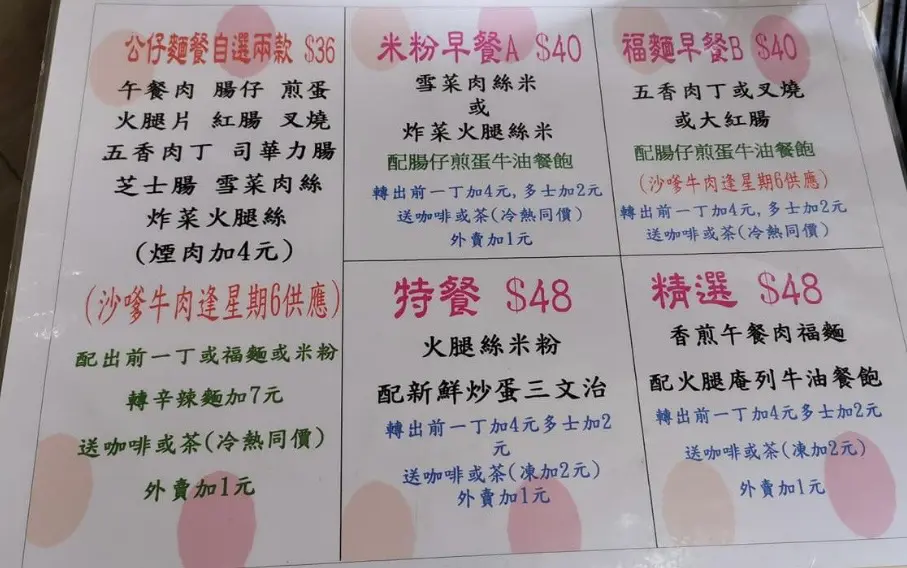 公仔麵餐自選兩款 $36
午餐肉 腸仔 煎蛋
火腿片 紅腸 叉燒
五香肉丁 司華力腸
芝士腸 雪菜肉絲
炸菜火腿絲
(煙肉加4元)
(沙嗲牛肉逢星期6供應)
配出前一丁或福麵或米粉
轉辛辣麵加7元
送咖啡或茶(冷熱同價)
外賣加1元
米粉早餐A $40
雪菜肉絲米
或
炸菜火腿絲米
配腸仔煎蛋牛油餐飽
轉出前一丁加4元,多士加2元
送咖啡或茶(冷熱同價)
外賣加1元
福麵早餐B $40
五香肉丁或叉燒
或大紅腸
配腸仔煎蛋牛油餐飽
(沙嗲牛肉逢星期6供應)
轉出前一丁加4元,多士加2元
送咖啡或茶(冷熱同價)
特餐 $48
火腿絲米粉
配新鮮炒蛋三文治
轉出前一丁加4元多士加2
元
送咖啡或茶(凍加2元)
外賣加1元
精選 $48
香煎午餐肉福麵
配火腿庵列牛油餐飽
轉出前一丁加4元多士加2元
送咖啡或茶(凍加2元)
外賣加1元